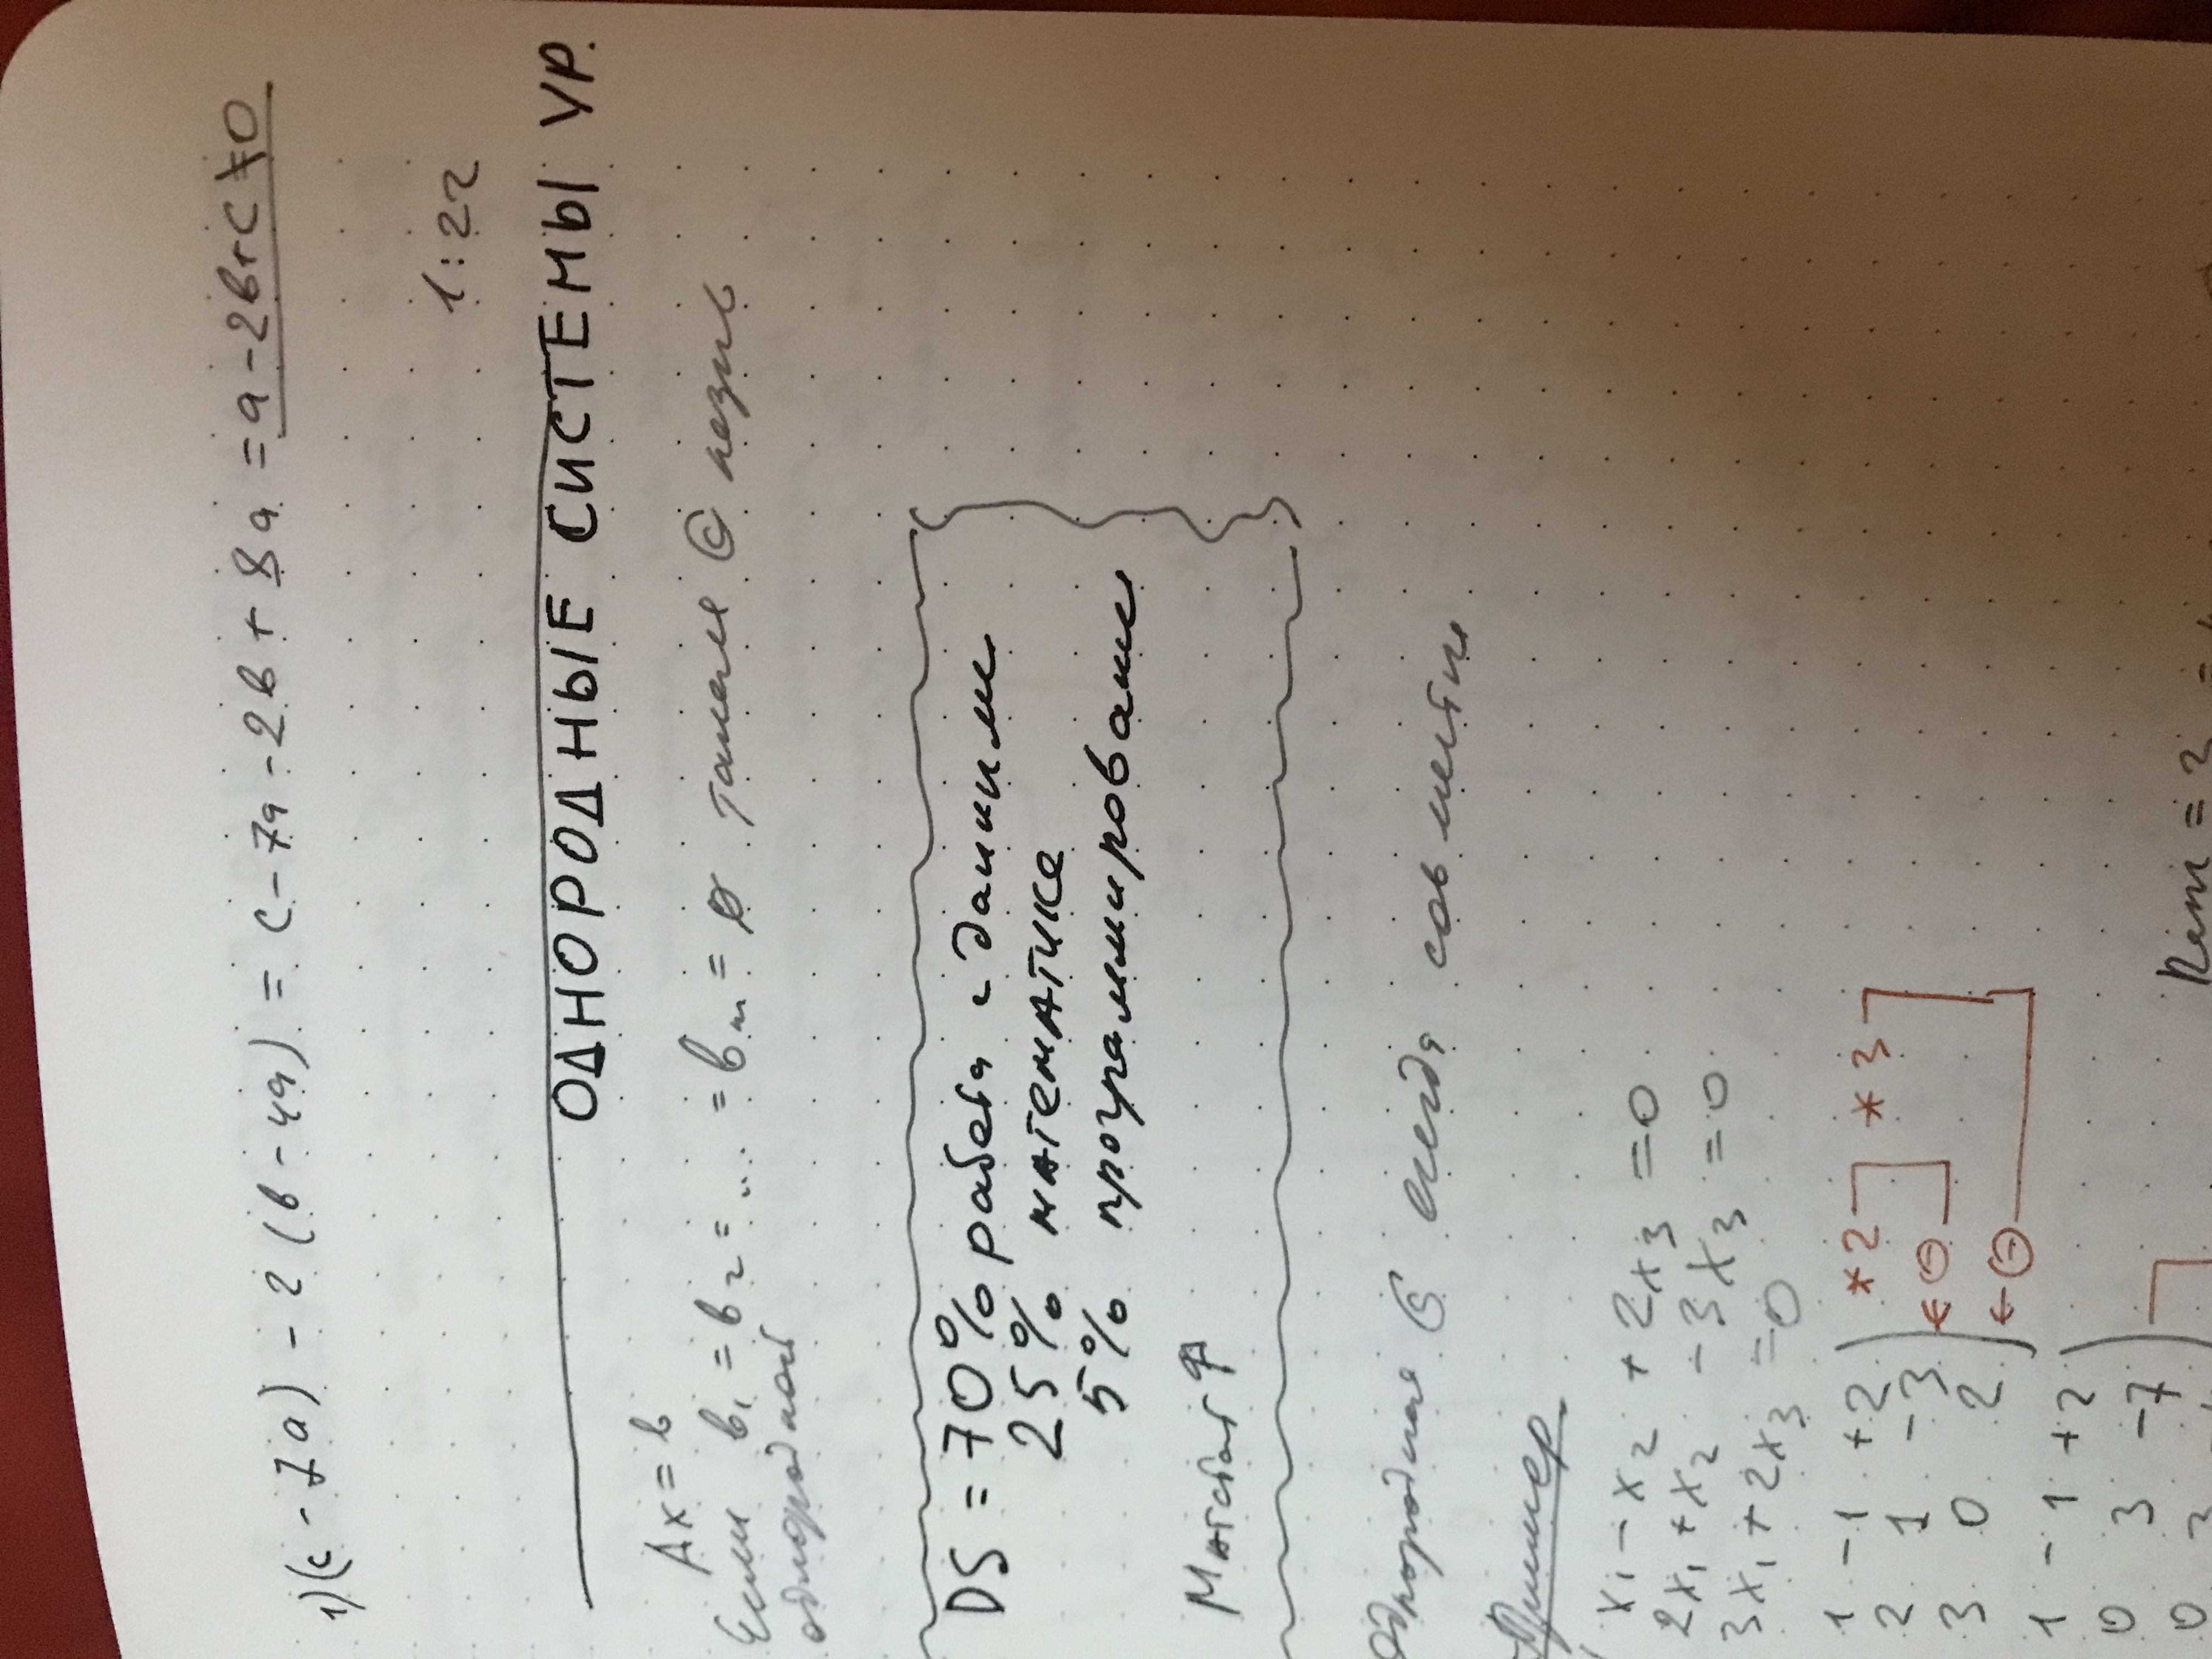 1) (c - 7a) - 2 (b - 4a) = c - 7a - 2b + 8a = a - 2b + c ≠ 0
1:22
ОДНОРОДНЫЕ СИСТЕМЫ УР.
Ax = b
Если b₁ = b₂ = ... = bₘ = 0 такая С назыв
однородной
DS = 70% работа с данными
25% математика
5% программирование
Матстат
Однородная С всегда совместна
Пример
x₁ - x₂ + 2x₃ = 0
2x₁ + x₂ - 3x₃ = 0
3x₁ + 2x₃ = 0
1 -1 +2 * 2 * 3
2 1 -3 ← ⊖
3 0 2 ← ⊖
1 -1 +2
0 3 -7
0 3
= 3 =